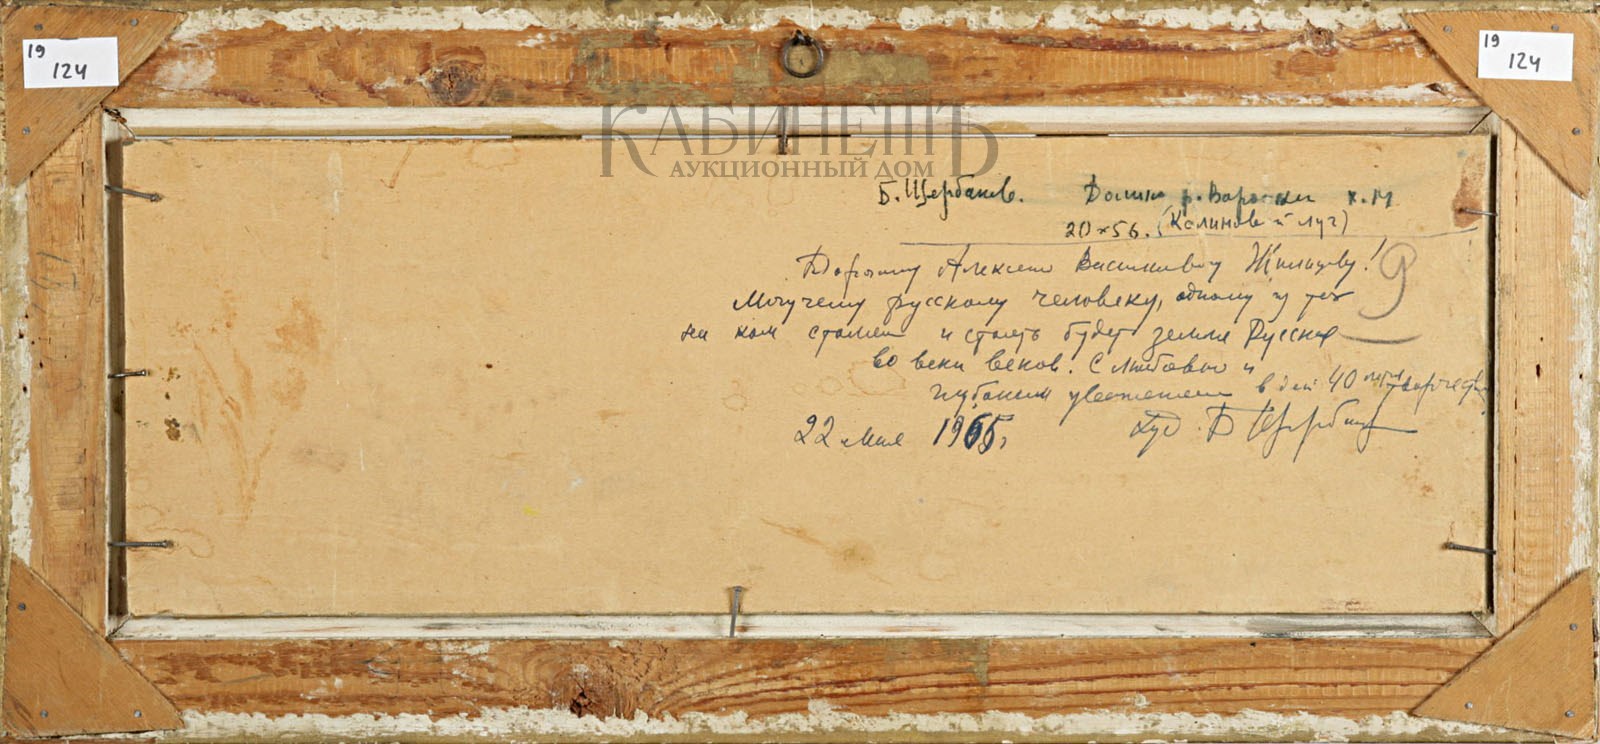 19
124
19
124
КАБИНЕТЪ
АУКЦИОННЫЙ ДОМ
Б. Щербаков. Долина р. Воронки х.м
20×56. (Калинов й луг)
Дорогому Алексею Васильевичу Жильцову!
Могучему русскому человеку, одному из тех
на ком стояла и стоять будет земля Русская
во веки веков. С любовью и
глубоким уважением в день 40 летия творчества
22 мая 1965г
Худ. Б Щербаков
9